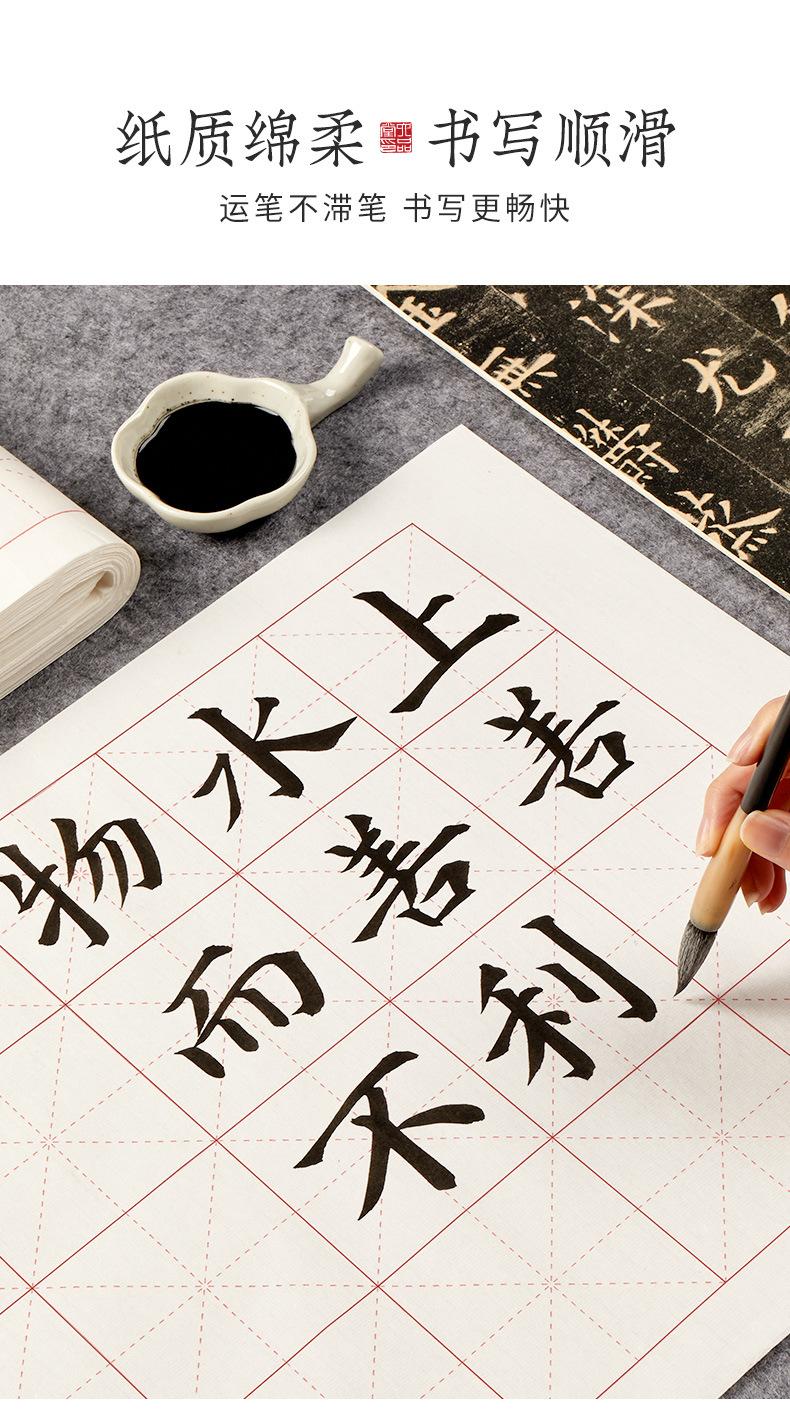 纸质绵柔 六品堂印 书写顺滑
运笔不滞笔 书写更畅快
上善
水善利
物而不
深
尤